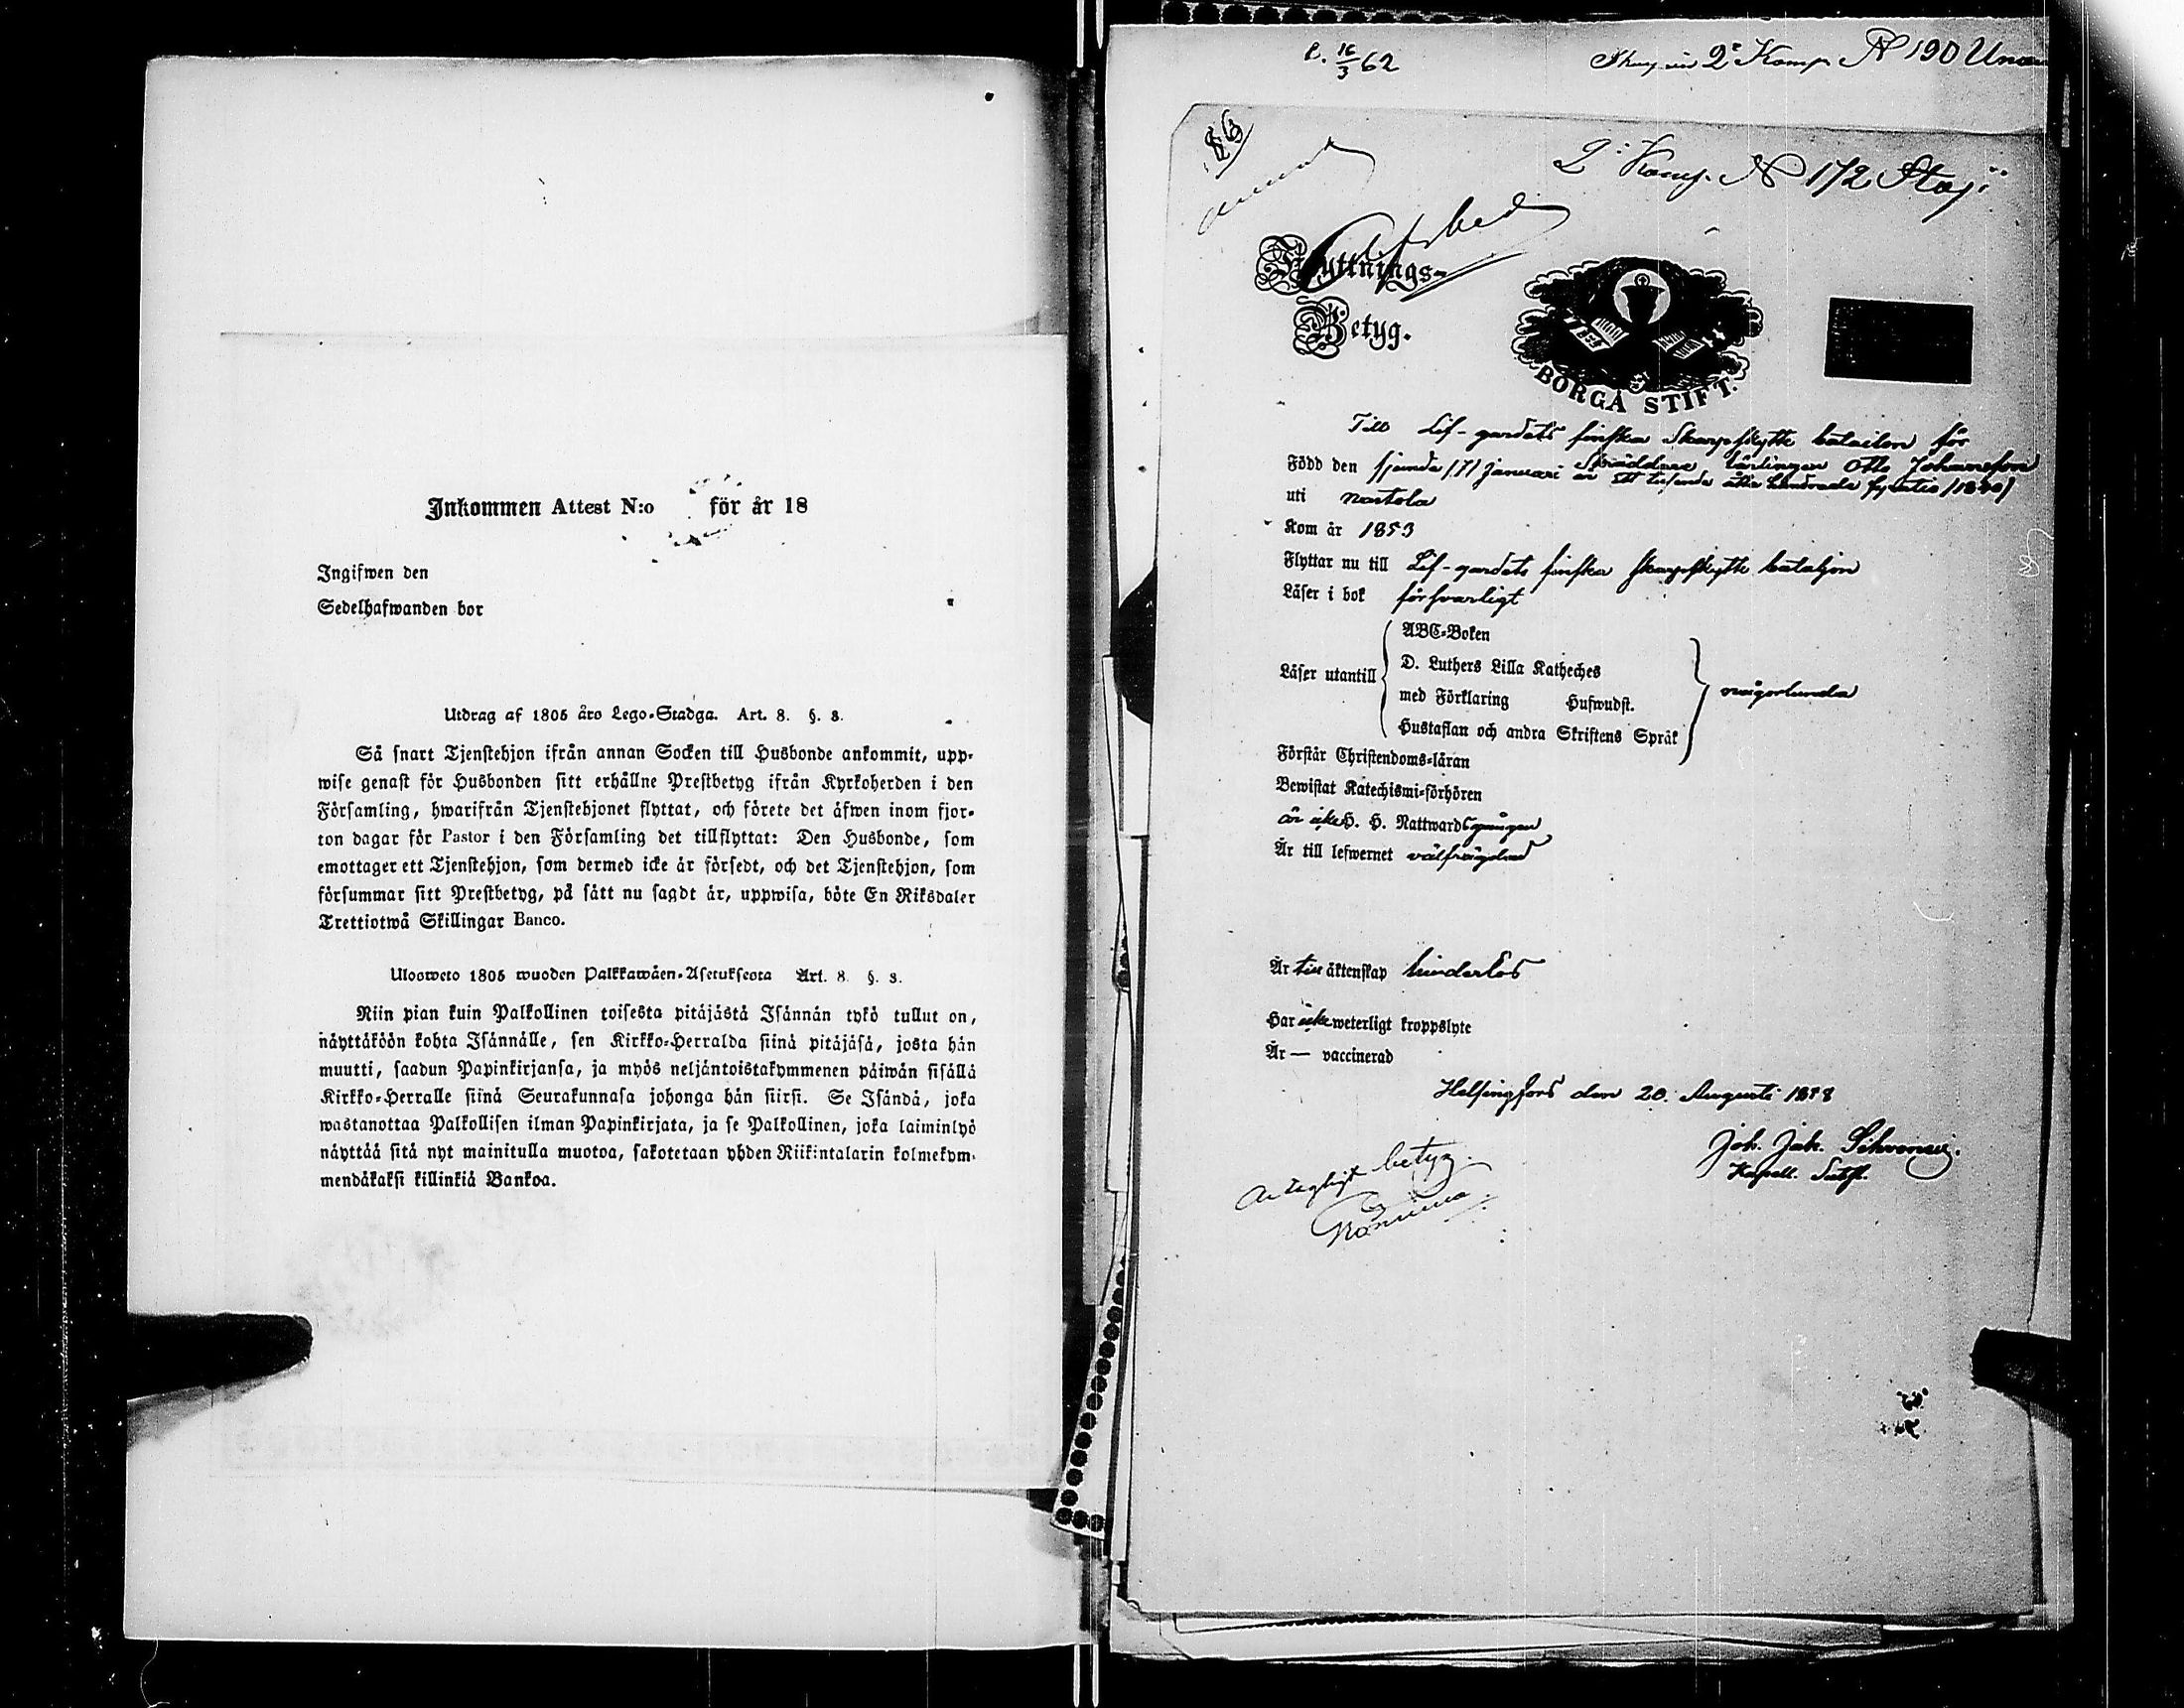 Inkommen Attest N:o för år 18
Ingifwen den
Sedelhafwanden bor
Utdrag af 1805 års Lego-Stadga. Art. 8. §. 3.
Så snart Tjenstehjon ifrån annan Socken till Husbonde ankommit, upp-
wise genast för Husbonden sitt erhållne Prestbetyg ifrån Kyrkoherden i den
Församling, hwarifrån Tjenstehjonet flyttat, och förete det äfwen inom fjor-
ton dagar för Pastor i den Församling det tillflyttat: Den Husbonde, som
emottager ett Tjenstehjon, som dermed icke är försedt, och det Tjenstehjon, som
försummar sitt Prestbetyg, på sätt nu sagdt är, uppwisa, böte En Riksdaler
Trettiotwå Skillingar Banco.
Uloosweto 1805 wuoden Palkkawäen-Asetuksesta Art. 8. §. 3.
Niin pian kuin Palkollinen toisesta pitäjästä Isännän tykö tullut on,
näyttäköön kohta Isännälle, sen Kirkko-Herralda siinä pitäjäsä, josta hän
muutti, saadun Papinkirjansa, ja myös neljäntoistakymmenen päiwän sisällä
Kirkko-Herralle siinä Seurakunnasa johonga hän siirsi. Se Isändä, joka
wastanottaa Palkollisen ilman Papinkirjata, ja se Palkollinen, joka laiminlyö
näyttää sitä nyt mainitulla muotoa, sakotetaan yhden Riikintalarin kolmekym-
mendäkaksi killinkiä Bankoa.
16/3 62
2a Komp. N 190
86
2a Komp. N 172
Afsked
Flyttnings-
Betyg.
BORGÅ STIFT.
Till Lif-gardets finska Skarpskytte bataillon för
Skräddare lärlingen Otto Johansson
Född den sjunde /7/ januari år Ett tusende åtta hundrade fyratio /1840/
uti Nastola
Kom år 1853
Flyttar nu till Lif-gardets finska skarpskytte bataljon
Läser i bok försvarligt
Läser utantill
ABC-Boken
D. Luthers Lilla Katheches
med Förklaring Hufwudst.
Hustaflan och andra Skriftens Språk
någorlunda
Förstår Christendoms-läran
Bewistat Katechismi-förhören
är icke H. H. Nattwardsgången
Är till lefwernet välfrägdad
Är till äktenskap hinderlös
Har icke weterligt kroppslyte
Är — vaccinerad
Helsingfors den 20. Augusti 1858
Joh. Jak.
Kapell.
betyg.